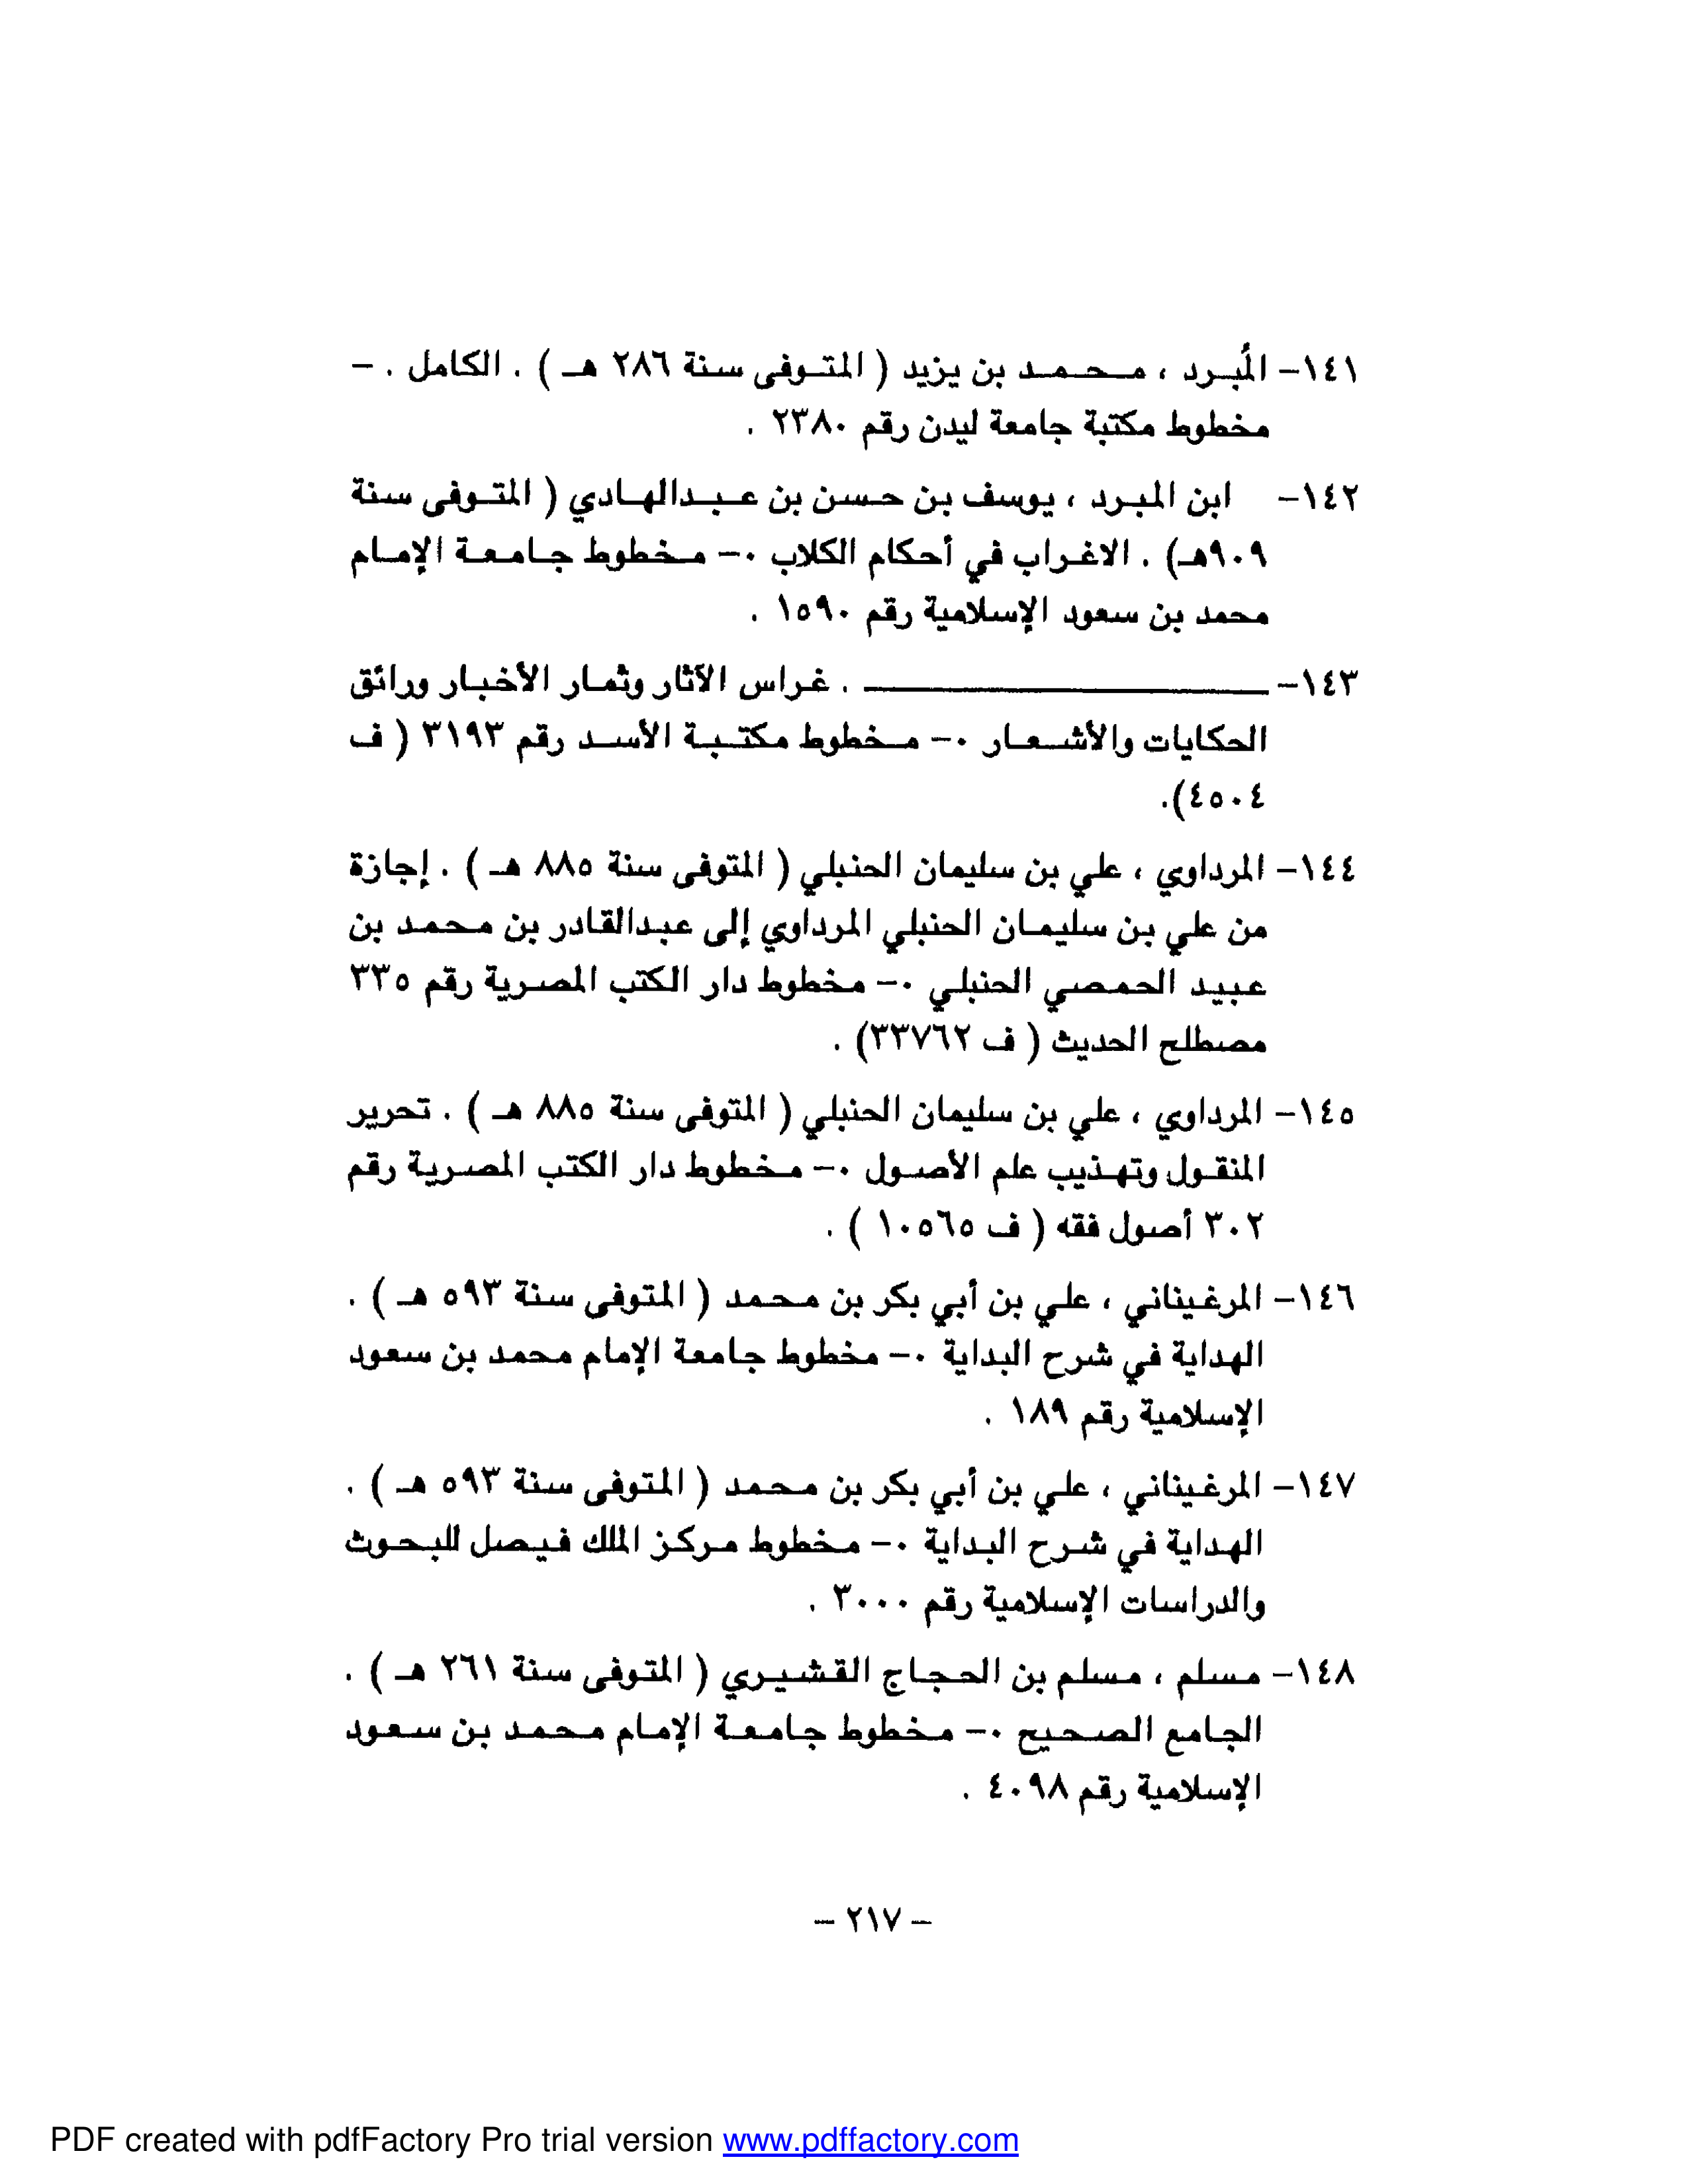 ١٤١- المُبرد ، محمد بن يزيد ( المتوفى سنة ٢٨٦ هـ ) . الكامل . -
مخطوط مكتبة جامعة ليدن رقم ٢٣٨٠ .
١٤٢- ابن المبرد ، يوسف بن حسن بن عبدالهادي ( المتوفى سنة
٩٠٩هـ) . الاغراب في أحكام الكلاب ٠- مخطوط جامعة الإمام
محمد بن سعود الإسلامية رقم ١٥٩٠ .
١٤٣- ــــــــــــــــــــــــ . غراس الآثار وثمار الأخبار ورائق
الحكايات والأشعار ٠- مخطوط مكتبة الأسد رقم ٣١٩٣ ( ف
٤٥٠٤).
١٤٤- المرداوي ، علي بن سليمان الحنبلي ( المتوفى سنة ٨٨٥ هـ ) . إجازة
من علي بن سليمان الحنبلي المرداوي إلى عبدالقادر بن محمد بن
عبيد الحمصي الحنبلي ٠- مخطوط دار الكتب المصرية رقم ٣٣٥
مصطلح الحديث ( ف ٣٣٧٦٢) .
١٤٥- المرداوي ، علي بن سليمان الحنبلي ( المتوفى سنة ٨٨٥ هـ ) . تحرير
المنقول وتهذيب علم الأصول ٠- مخطوط دار الكتب المصرية رقم
٣٠٢ أصول فقه ( ف ١٠٥٦٥ ) .
١٤٦- المرغيناني ، علي بن أبي بكر بن محمد ( المتوفى سنة ٥٩٣ هـ ) .
الهداية في شرح البداية ٠- مخطوط جامعة الإمام محمد بن سعود
الإسلامية رقم ١٨٩ .
١٤٧- المرغيناني ، علي بن أبي بكر بن محمد ( المتوفى سنة ٥٩٣ هـ ) .
الهداية في شرح البداية ٠- مخطوط مركز الملك فيصل للبحوث
والدراسات الإسلامية رقم ٣٠٠٠ .
١٤٨- مسلم ، مسلم بن الحجاج القشيري ( المتوفى سنة ٢٦١ هـ ) .
الجامع الصحيح ٠- مخطوط جامعة الإمام محمد بن سعود
الإسلامية رقم ٤٠٩٨ .
- ٢١٧ -
PDF created with pdfFactory Pro trial version www.pdffactory.com